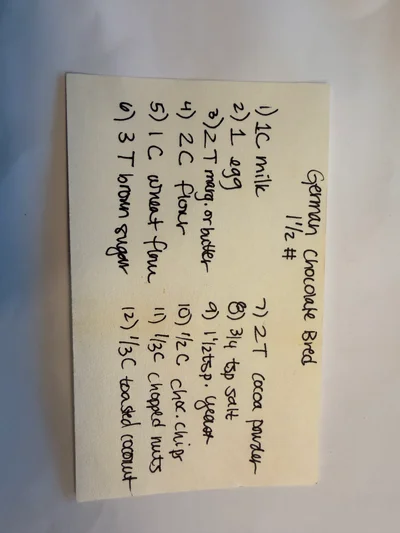 German Chocolate Bred
1 1/2 #
1) 1C milk
2) 1 egg
3) 2 T marg. or butter
4) 2 C flour
5) 1 C wheat flour
6) 3 T brown sugar
7) 2 T cocoa powder
8) 3/4 tsp salt
9) 1 1/2 tsp. yeast
10) 1/2 C choc. chips
11) 1/3 C chopped nuts
12) 1/3 C toasted coconut